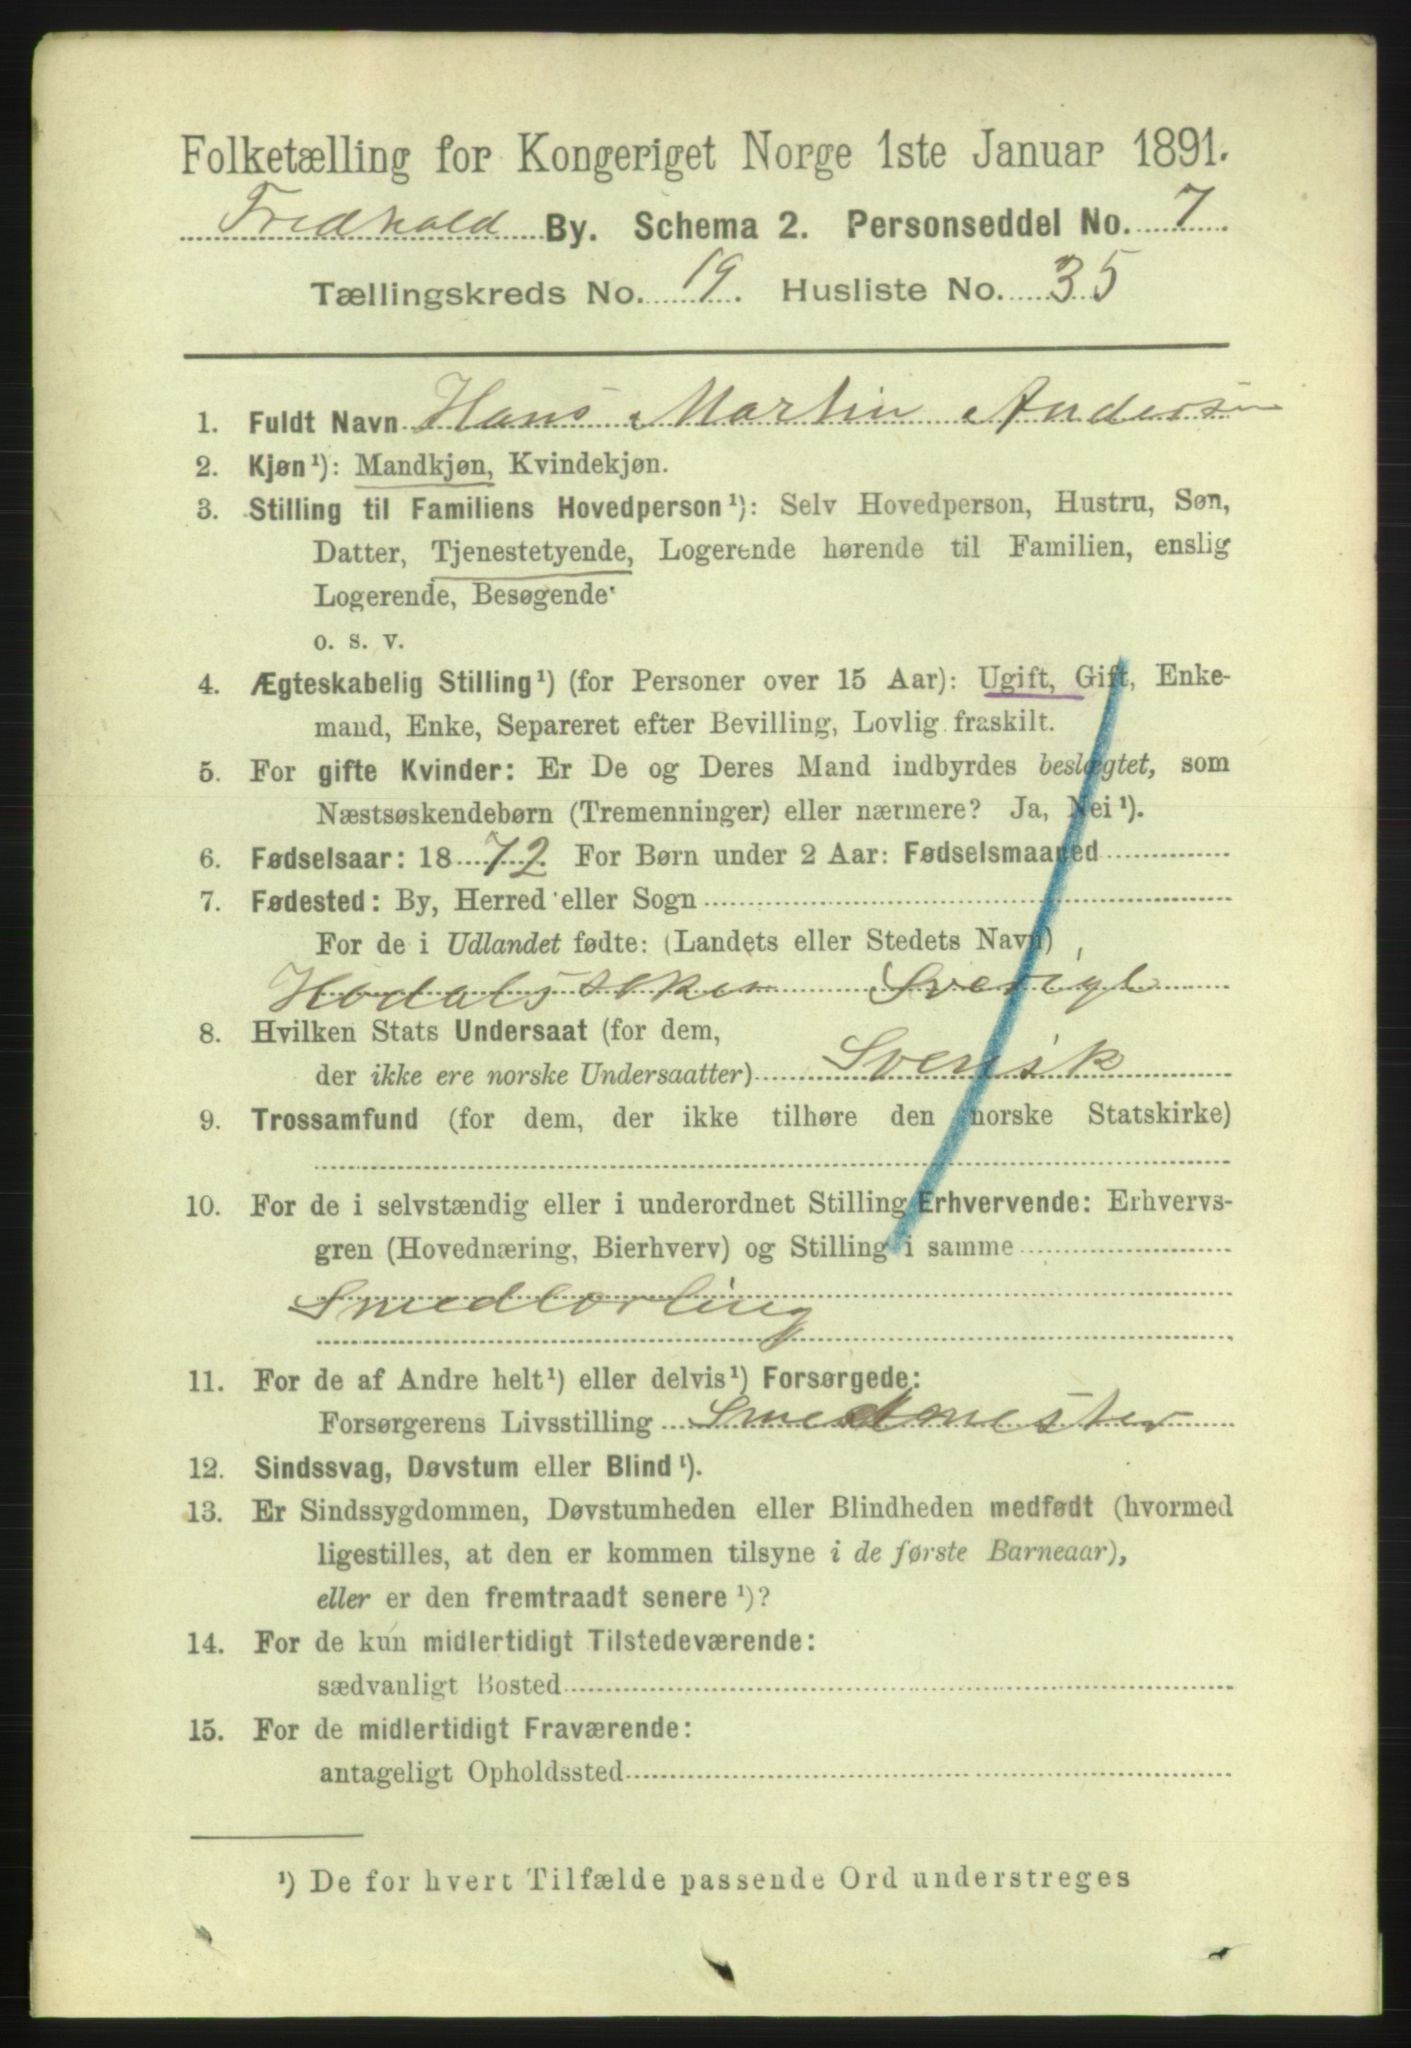 Folketælling for Kongeriget Norge 1ste Januar 1891.
Fredhald By. Schema 2. Personseddel No. 7.
Tællingskreds No. 19. Husliste No. 35
1. Fuldt Navn Hans Martin Andersen
2. Kjøn¹): Mandkjøn, Kvindekjøn.
3. Stilling til Familiens Hovedperson¹): Selv Hovedperson, Hustru, Søn,
Datter, Tjenestetyende, Logerende hørende til Familien, enslig
Logerende, Besøgende
o. s. v.
4. Ægteskabelig Stilling¹) (for Personer over 15 Aar): Ugift, Gift, Enke-
mand, Enke, Separeret efter Bevilling, Lovlig fraskilt.
5. For gifte Kvinder: Er De og Deres Mand indbyrdes beslægtet, som
Næstsøskendebørn (Tremenninger) eller nærmere? Ja, Nei¹).
6. Fødselsaar: 1872. For Børn under 2 Aar: Fødselsmaaned
7. Fødested: By, Herred eller Sogn
For de i Udlandet fødte: (Landets eller Stedets Navn)
Sverige
8. Hvilken Stats Undersaat (for dem,
der ikke ere norske Undersaatter) Svensk
9. Trossamfund (for dem, der ikke tilhøre den norske Statskirke)
10. For de i selvstændig eller i underordnet Stilling Erhvervende: Erhvervs-
gren (Hovednæring, Bierhverv) og Stilling i samme
Smedlærling
11. For de af Andre helt¹) eller delvis¹) Forsørgede:
Forsørgerens Livsstilling Smedmester
12. Sindssvag, Døvstum eller Blind¹).
13. Er Sindssygdommen, Døvstumheden eller Blindheden medfødt (hvormed
ligestilles, at den er kommen tilsyne i de første Barneaar),
eller er den fremtraadt senere¹)?
14. For de kun midlertidigt Tilstedeværende:
sædvanligt Bosted
15. For de midlertidigt Fraværende:
antageligt Opholdssted
¹) De for hvert Tilfælde passende Ord understreges